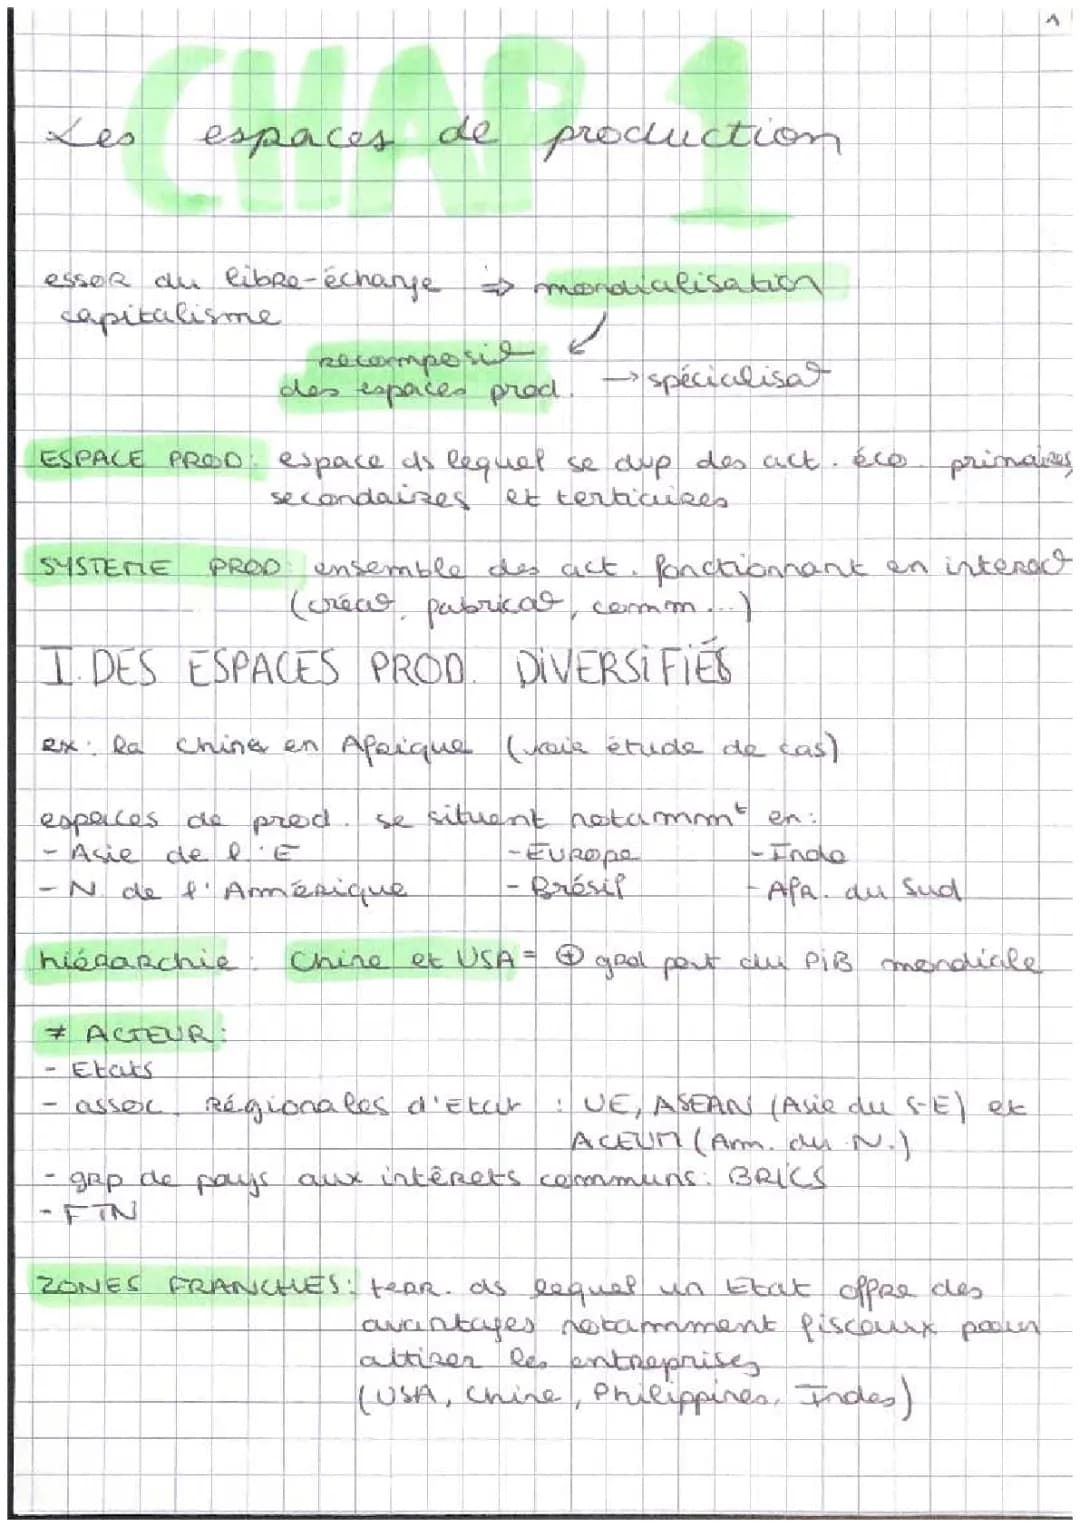 1
CHAP 1
Les espaces de production
essor du libre-échange ⇒ mondialisation
capitalisme
recomposit°
des espaces prod. → spécialisat°
ESPACE PROD: espace ds lequel se dvp des act. éco. primaires,
secondaires et tertiaires
SYSTEME PROD: ensemble des act. fonctionnant en interact°
(créat°, fabricat°, comm...)
I. DES ESPACES PROD. DIVERSIFIÉS
ex: la Chine en Afrique (voir étude de cas)
espaces de prod. se situent notammt en:
- Asie de l'E - Europe - Inde
- N. de l'Amérique - Brésil - Afr. du Sud
hiérarchie: Chine et USA = ⊕ grd part du PiB mondiale
≠ ACTEUR:
- Etats
- assoc. régionales d'Etat : UE, ASEAN (Asie du S-E) et
ACEUM (Am. du N.)
- grp de pays aux intérets communs: BRICS
- FTN
ZONES FRANCHES: terr. ds lequel un Etat offre des
avantages notamment fiscaux pour
attirer les entreprises
(USA, Chine, Philippines, Indes)